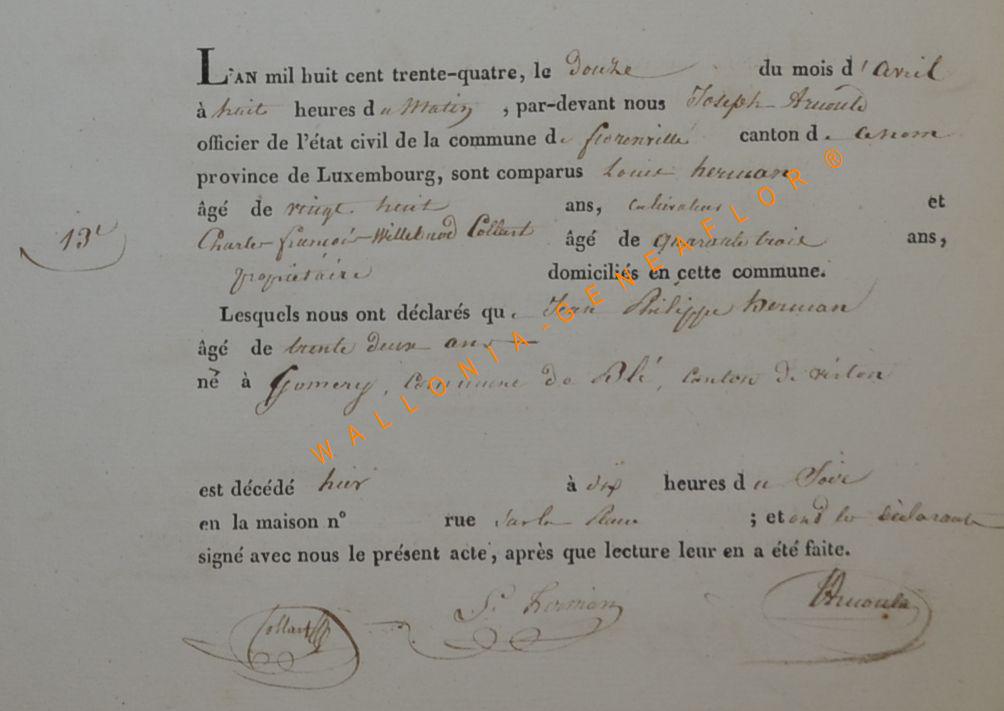 L'AN mil huit cent trente-quatre, le douze du mois d'avril
à huit heures du Matin, par-devant nous Joseph Arnould
officier de l'état civil de la commune de florenville canton d.
province de Luxembourg, sont comparus Louis herman
âgé de vingt huit ans, cultivateur et
13e
Charles françois Collart âgé de quarante trois ans,
propriétaire domiciliés en cette commune.
Lesquels nous ont déclarés que Jean Philippe herman
âgé de trente deux ans
né à Gomery, commune de Blé, canton de virton
WALLONIA-GENEAFLOR ®
est décédé hier à dix heures du Soir
en la maison n° rue sur la Place ; et ont les déclarants
signé avec nous le présent acte, après que lecture leur en a été faite.
Collart herman Arnould